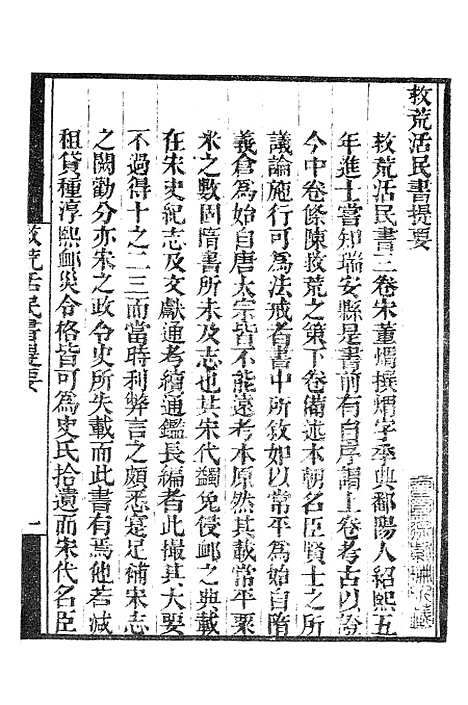 救荒活民書提要
救荒活民書三卷宋董煟撰煟字季興鄱陽人紹熙五
年進士嘗知瑞安縣是書前有自序謂上卷考古以證
今中卷條陳救荒之策下卷備述本朝名臣賢士之所
議論施行可為法戒者書中所敘如以常平為始自隋
義倉為始自唐太宗皆不能遠考本原然其載常平粟
米之數固隋書所未及志也其宋代蠲免優卹之典載
在宋史紀志及文獻通考續通鑑長編者此撮其大要
不過得十之二三而當時利弊言之頗悉寔足補宋志
之闕勸分亦宋之政令史所失載而此書有焉他若減
租貸種淳熙卹災令格皆可為史氏拾遺而宋代名臣
救荒活民書提要
一